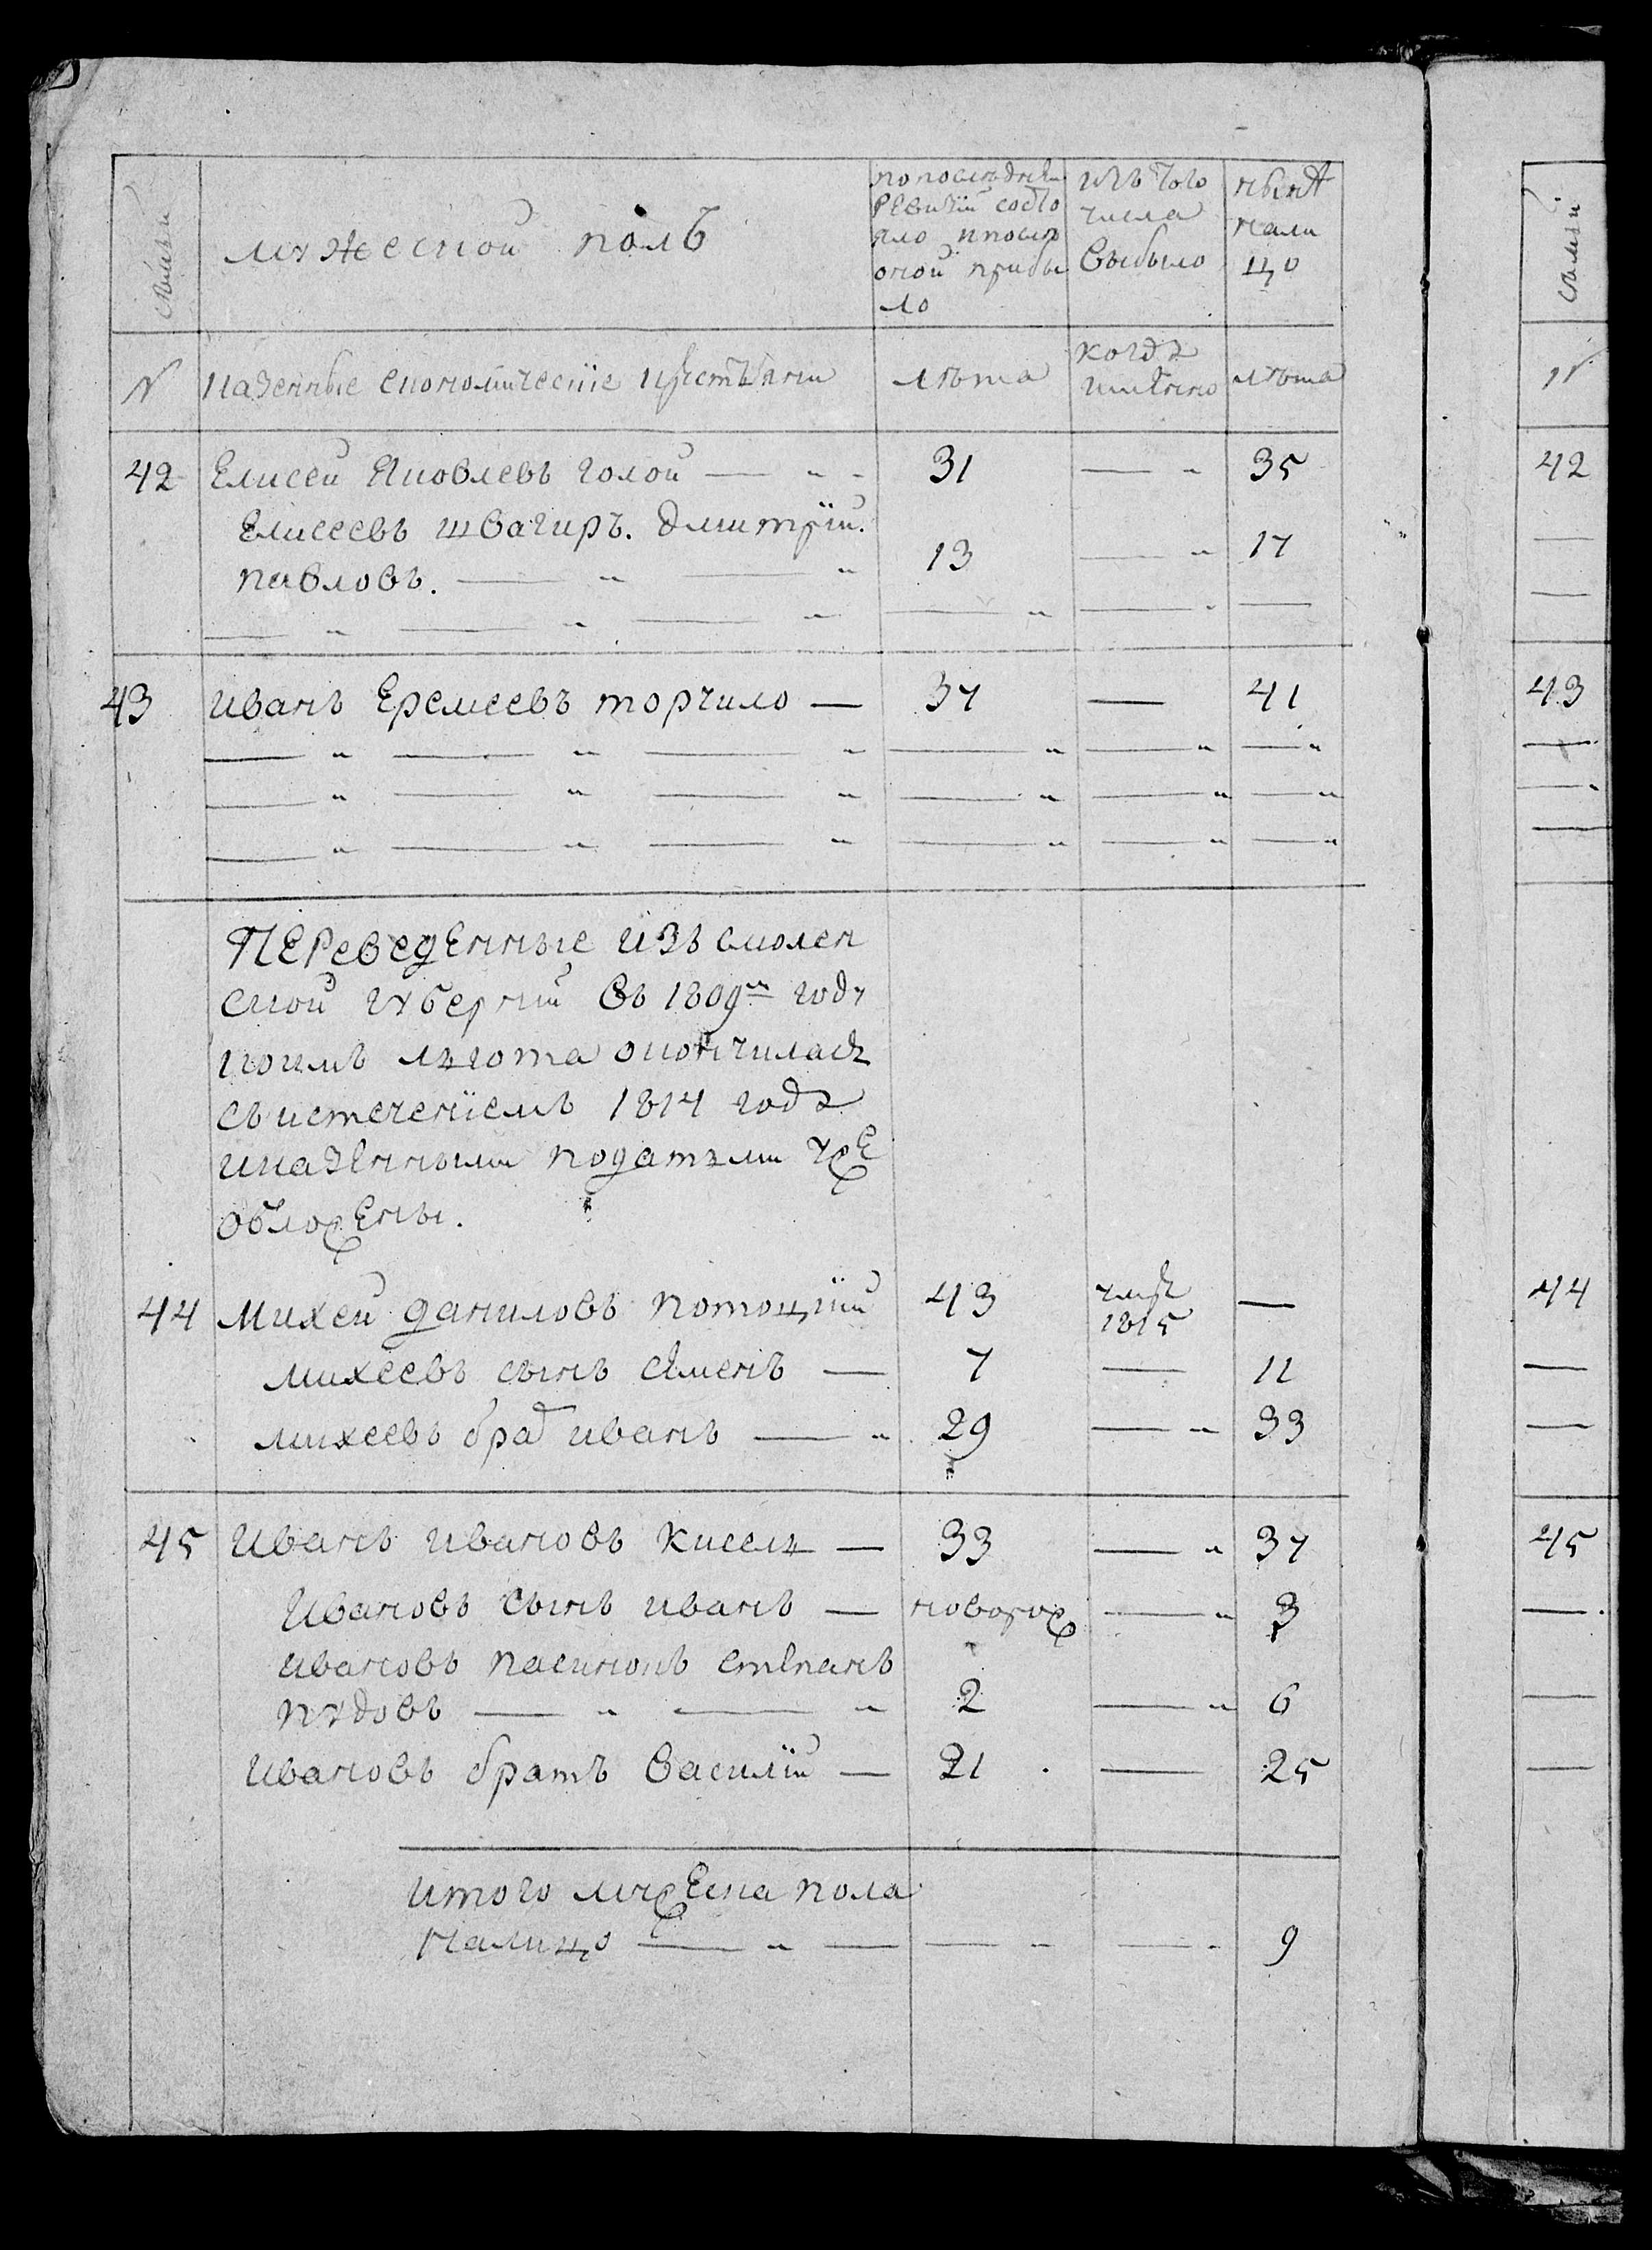 семьи
мужеской полъ
по последней
Ревизїи состо
яло и после
оной прибы
ло
изъ того
числа
выбыло
нынѣ
нали
цо
семьи
N
казенные економическїе крестьяни
лѣта
когда
имянно
лѣта
N
42 Елисей Яковлевъ голой — „ - 31 — „ 35 42
Елисеевъ швагиръ. дмитрїй.
павловъ. — „ — „ 13 — „ 17
43 иванъ Еремеевъ торчило — 37 — 41 43
Переведенные изъ смолен
ской губернїи въ 1809м году
коимъ льгота окончилась
съ истеченїемъ 1814 года
и казенными податьми уже
обложены.
44 Михей даниловъ потоцкїй 43 умре 1815 — 44
михеевъ сынъ семенъ — 7 — 11
михеевъ брат иванъ — „ 29 — „ 33
45 Иванъ ивановъ кисель — 33 — „ 37 45
Ивановъ сынъ иванъ — новорож — „ 3
ивановъ пасинокъ степанъ
пудовъ — „ — „ 2 — „ 6
ивановъ братъ василїй — 21 . — 25
итого мужеска пола
налицо — „ — — - — - 9